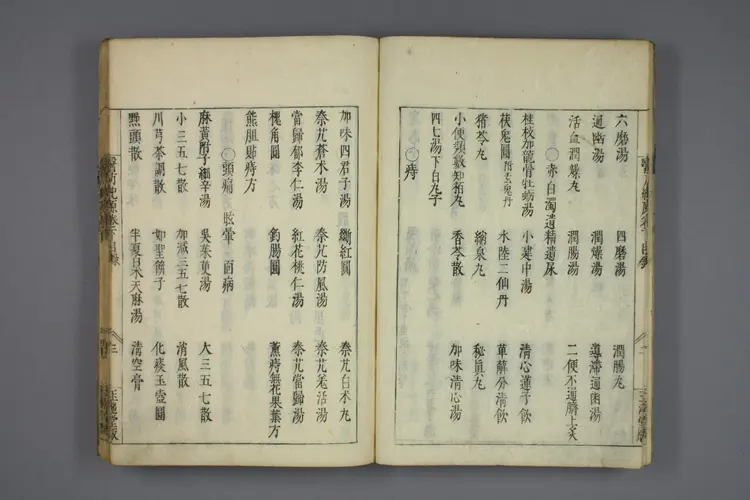 六磨湯 四磨湯 潤腸丸
通幽湯 潤燥湯 導滯通幽湯
活血潤燥丸 潤腸湯 二便不通臍上灸
○赤白濁遺精遺尿
桂枝加龍骨牡蛎湯 小建中湯 清心蓮子飲
茯兎圓 水陸二仙丹 萆薢分清飲
猪苓丸 縮泉丸 秘眞丸
小便頻數知栢丸 香苓散 加味清心湯
四七湯下白丸子
○痔
加味四君子湯 斷紅圓 秦艽白朮丸
秦艽蒼朮湯 秦艽防風湯 秦艽羗活湯
當歸郁李仁湯 紅花桃仁湯 秦艽當歸湯
槐角圓 釣腸圓 薰痔無花果葉方
熊胆貼痔方
○頭痛 眩暈 面病
麻黄附子細辛湯 吳茱萸湯 大三五七散
小三五七散 加減三五七散 消風散
川芎茶調散 如聖餅子 化痰玉壺圓
點頭散 半夏白朮天麻湯 清空膏